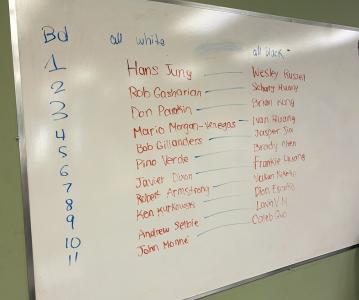 Bd all white all black
1 Hans Jung Wesley Russell
2 Rob Gasharian Huang
3 Don Parikin Brian Kong
4 Mario Morgan-Venegas Ivan Huang
5 Bob Gillanders Jasper Jin
6 Pino Verde Brody Chen
7 Javier Dixon Frankie
8 Robert Armstrong
9 Ken Kurkowski
10 Andrew Selbie
11 John Monné Caleb Guo